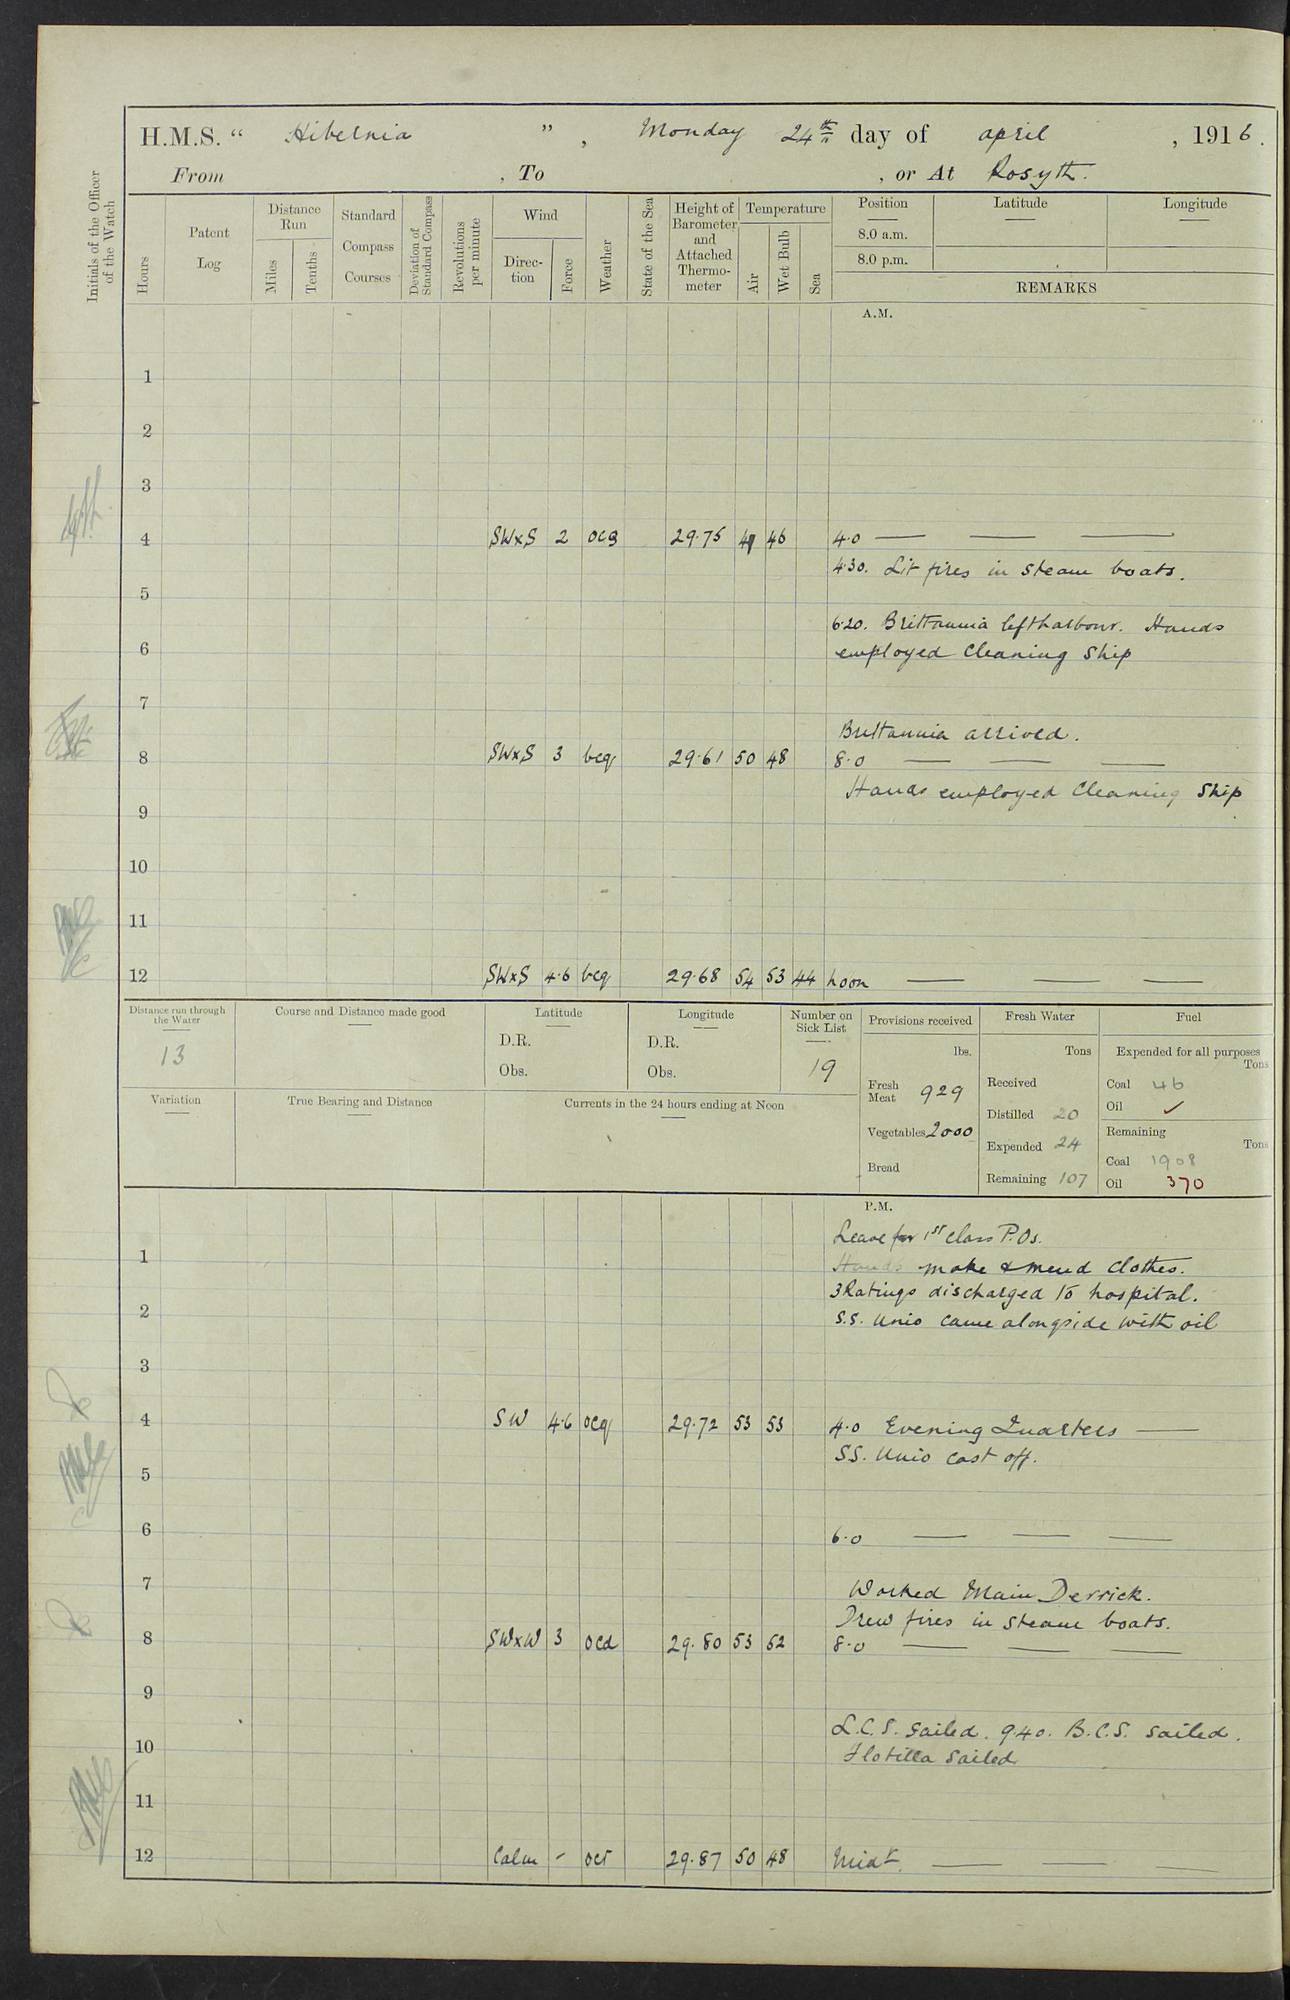 H.M.S. “ Hibernia ” , Monday 24th day of April , 1916.
From , To , or At Rosyth.
Initials of the Officer of the Watch
Hours
Patent Log
Distance Run
Miles
Tenths
Standard Compass Courses
Deviation of Standard Compass
Revolutions per minute
Wind
Direc-tion
Force
Weather
State of the Sea
Height of Barometer and Attached Thermo-meter
Temperature
Air
Wet Bulb
Sea
Position
8.0 a.m.
8.0 p.m.
Latitude
Longitude
REMARKS
A.M.
1
2
3
4 SWxS 2 29.75 46 4.0
4.30. Lit fires in steam boats.
5
6.20. Brittannia left harbour. Hands
6 employed cleaning ship
7
Brittannia arrived.
8 SWxS 3 bcq 29.61 50 48 8.0
Hands employed cleaning ship
9
10
11
12 SWxS 4.6 bcq 29.68 54 53 44 noon
Distance run through the Water
13
Course and Distance made good
Latitude
D.R.
Obs.
Longitude
D.R.
Obs.
Number on Sick List
19
Variation
True Bearing and Distance
Currents in the 24 hours ending at Noon
Provisions received
lbs.
Fresh Meat 929
Vegetables 2000
Bread
Fresh Water
Tons
Received
Distilled 20
Expended 24
Remaining 107
Fuel
Expended for all purposes
Tons
Coal 46
Oil ✓
Remaining
Tons
Coal 1908
Oil 370
P.M.
Leave for 1st class P.Os.
1 Hands make & mend clothes.
3 Ratings discharged to hospital.
2 S.S. Unio came alongside with oil
3
4 SW 4.6 ocq 29.72 53 53 4.0 Evening Quarters
SS. Unio cast off.
5
6 6.0
7 Worked Main Derrick.
Drew fires in steam boats.
8 SWxW 3 ocd 29.80 53 52 8.0
9
L.C.S. sailed. 940. B.C.S. sailed.
10 Flotilla sailed
11
12 Calm - 29.87 50 48 Midt.